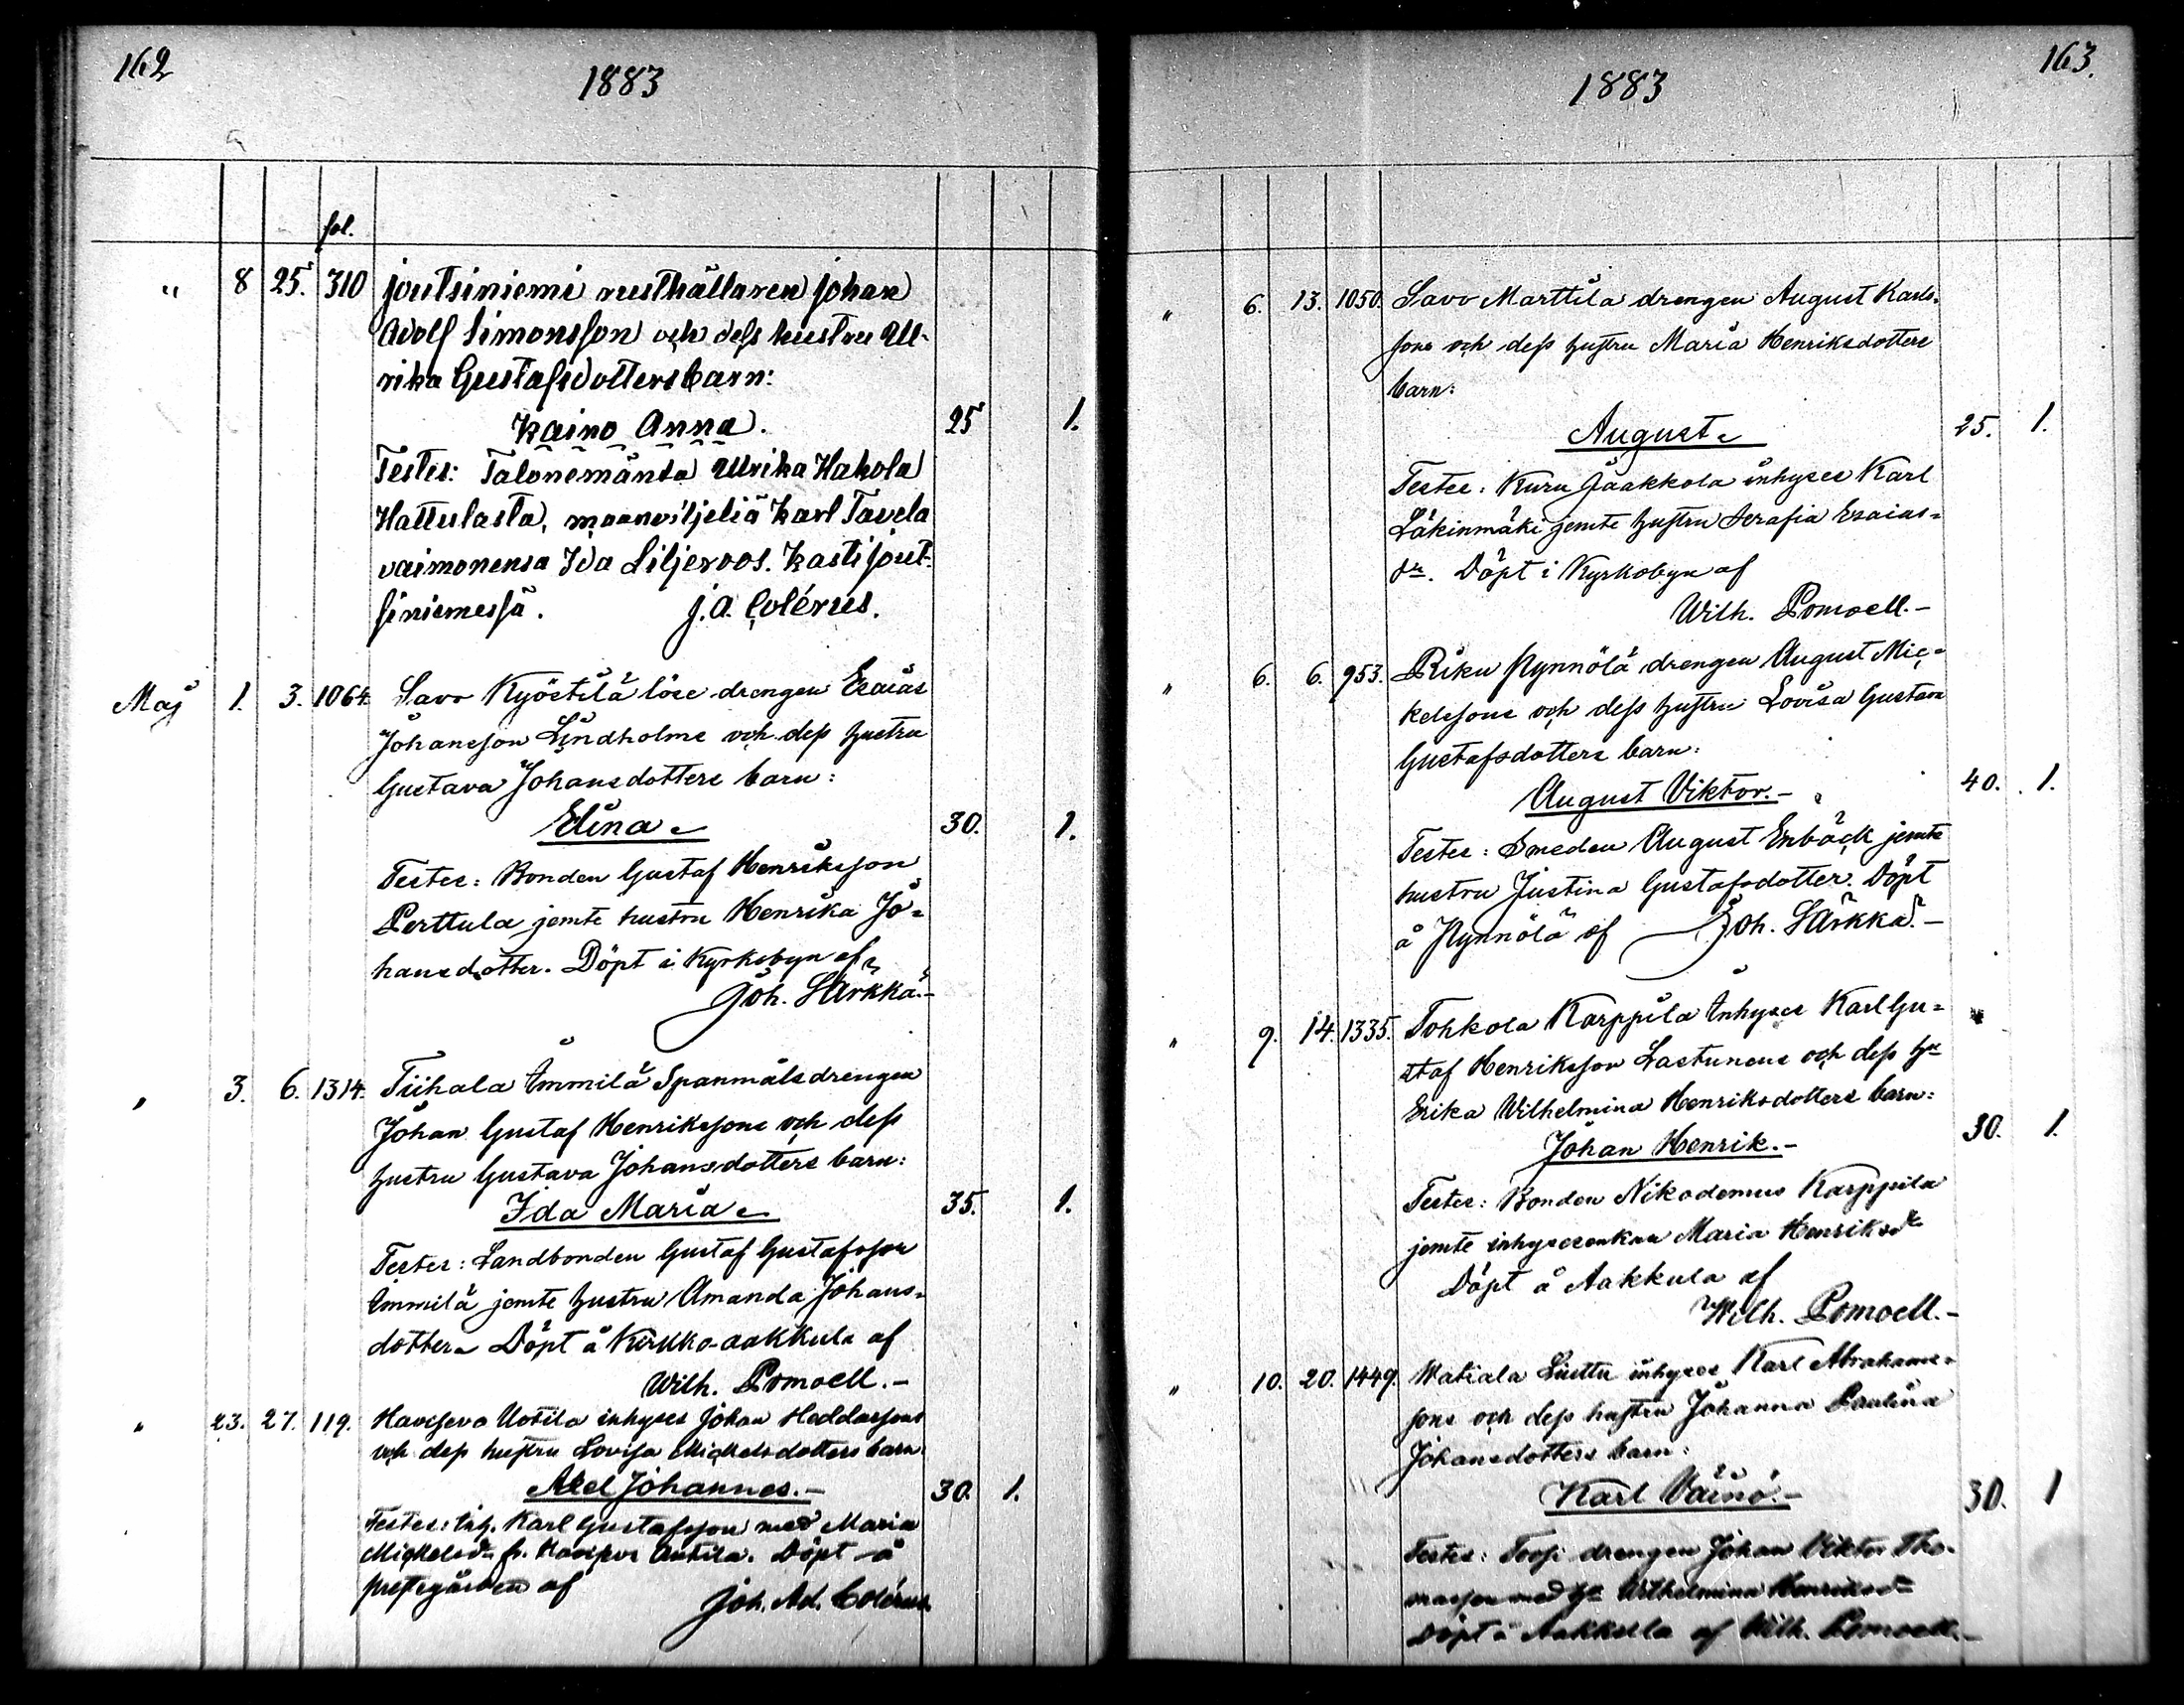 162
1883
fol.
" 8 25. 310 Joutsiniemi rusthållaren Johan
Adolf Simonsson och dess hustru Ul-
rika Gustafsdotters barn:
Kaino Anna. 25 1.
Testes: Talonemäntä Ulrika Hakola
Hattulasta, maanviljeliä Karl Tavela
vaimonensa Ida Liljeroos. Kasti Jout-
siniemessä. J. A. Colérus.
Maj 1. 3. 1064. Savo Kyöstilä löse drengen Esaias
Johansson Lindholms och dess hustru
Gustava Johansdotters barn:
Elina 30. 1.
Testes: Bonden Gustaf Henriksson
Perttula jemte hustru Henrika Jo-
hansdotter. Döpt i Kyrkobyn af
Joh. Särkkä.-
" 3. 6. 1314. Tiihala Immilä Spanmålsdrengen
Johan Gustaf Henrikssons och dess
hustru Gustava Johansdotters barn:
Ida Maria 35. 1.
Testes: Landbonden Gustaf Gustafsson
Immilä jemte hustru Amanda Johans-
dotter Döpt å Kirkko-aakkula af
Wilh. Pomoell.-
" 23. 27. 119. Uotila inhyses Johan
och dess hustru Lovisa Mickelsdotters barn
Axel Johannes.- 30. 1.
Testes: Inh. Karl Gustafsson med Maria
Mickelsdr fr. Antila. Döpt å
prestgården af
Joh. Ad. Colérus
163.
1883
" 6. 13. 1050. Savo Marttila drengen August Karls-
sons och dess hustru Maria Henriksdotters
barn:
August 25. 1.
Testes: Kuru Jaakkola inhyses Karl
Läkinmäki jemte hustru Serafia Esaias-
dr. Döpt i Kyrkobyn af
Wilh. Pomoell.-
" 6. 6. 953. Riku Nynnölä drengen August Mic-
kelssons och dess hustru Lovisa Gustava
Gustafsdotters barn:
August Viktor.- 40. 1.
Testes: Smeden August Enbäck jemte
hustru Justina Gustafsdotter. Döpt
å Nynnölä af Joh. Särkkä.-
" 9. 14. 1335. Tohkola Karppila Inhyses Karl Gu-
staf Henriksson Lastunens och dess hu
Erika Wilhelmina Henriksdotters barn:
Johan Henrik.- 30. 1.
Testes: Bonden Nikodemus Karppila
jemte inhysesenkan Maria Henriksdr
Döpt å Aakkula af
Wilh. Pomoell.-
" 10. 20. 1449. Matiala Liuttu inhyses Karl Abrahams-
sons och dess hustru Johanna Paulina
Johansdotters barn:
Karl Väinö.- 30. 1
Testes: drengen Johan Viktor Tho-
masson med hu Wilhelmina Henriksdr
Döpt i Aakkula af Wilh. Pomoell.-